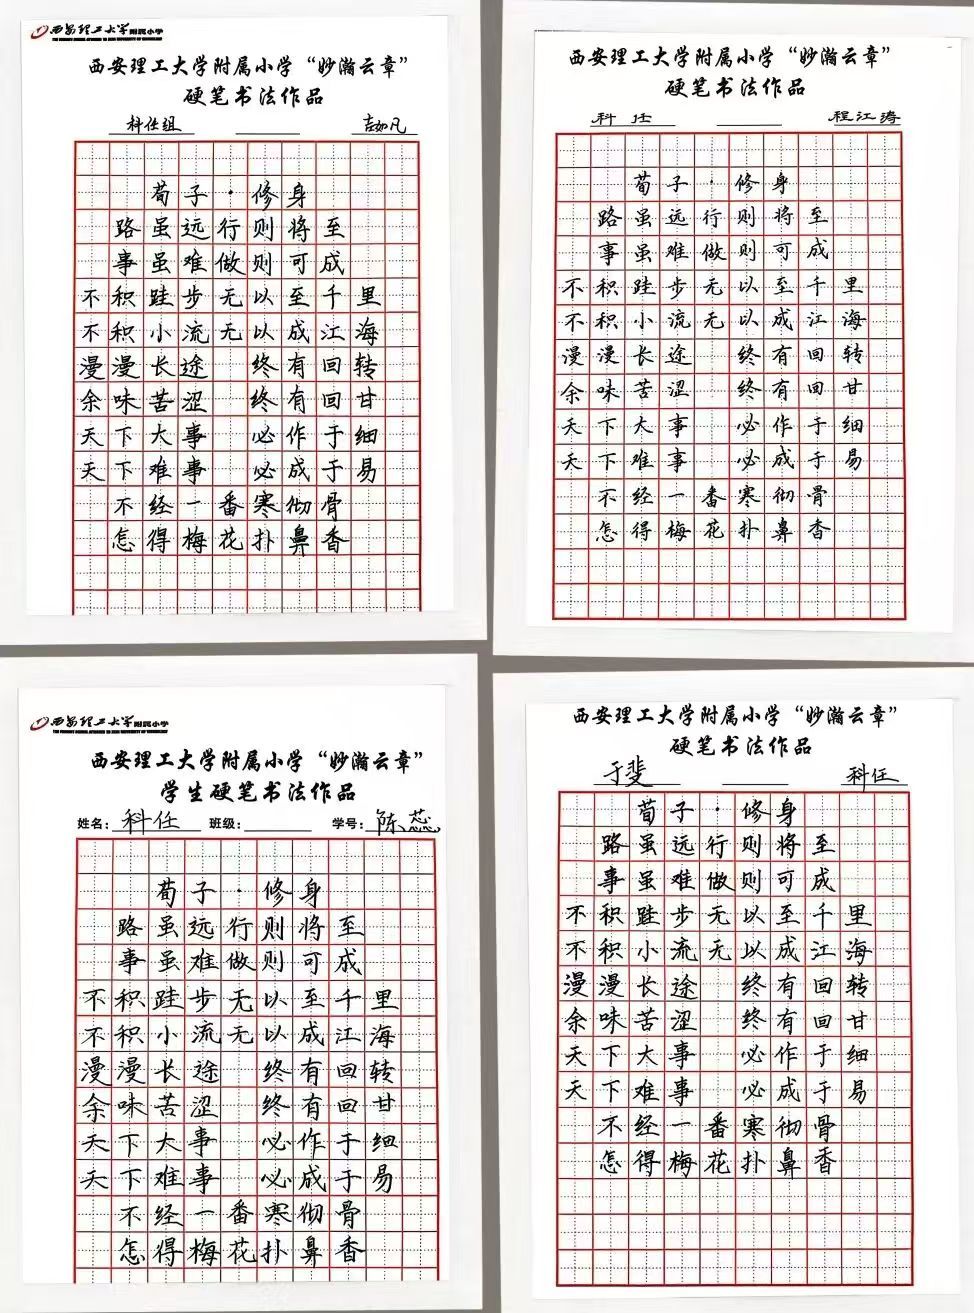 西安理工大学附属小学
西安理工大学附属小学“妙瀚云章”
硬笔书法作品
科任组 吉如凡
荀子·修身
路虽远行则将至
事虽难做则可成
不积跬步无以至千里
不积小流无以成江海
漫漫长途 终有回转
余味苦涩 终有回甘
天下大事 必作于细
天下难事 必成于易
不经一番寒彻骨
怎得梅花扑鼻香
西安理工大学附属小学“妙瀚云章”
硬笔书法作品
科任 程江涛
荀子·修身
路虽远行则将至
事虽难做则可成
不积跬步无以至千里
不积小流无以成江海
漫漫长途 终有回转
余味苦涩 终有回甘
天下大事 必作于细
天下难事 必成于易
不经一番寒彻骨
怎得梅花扑鼻香
西安理工大学附属小学
西安理工大学附属小学“妙瀚云章”
学生硬笔书法作品
姓名：科任 班级： 学号：陈蕊
荀子·修身
路虽远行则将至
事虽难做则可成
不积跬步无以至千里
不积小流无以成江海
漫漫长途 终有回转
余味苦涩 终有回甘
天下大事 必作于细
天下难事 必成于易
不经一番寒彻骨
怎得梅花扑鼻香
西安理工大学附属小学“妙瀚云章”
硬笔书法作品
于斐 科任
荀子·修身
路虽远行则将至
事虽难做则可成
不积跬步无以至千里
不积小流无以成江海
漫漫长途 终有回转
余味苦涩 终有回甘
天下大事 必作于细
天下难事 必成于易
不经一番寒彻骨
怎得梅花扑鼻香